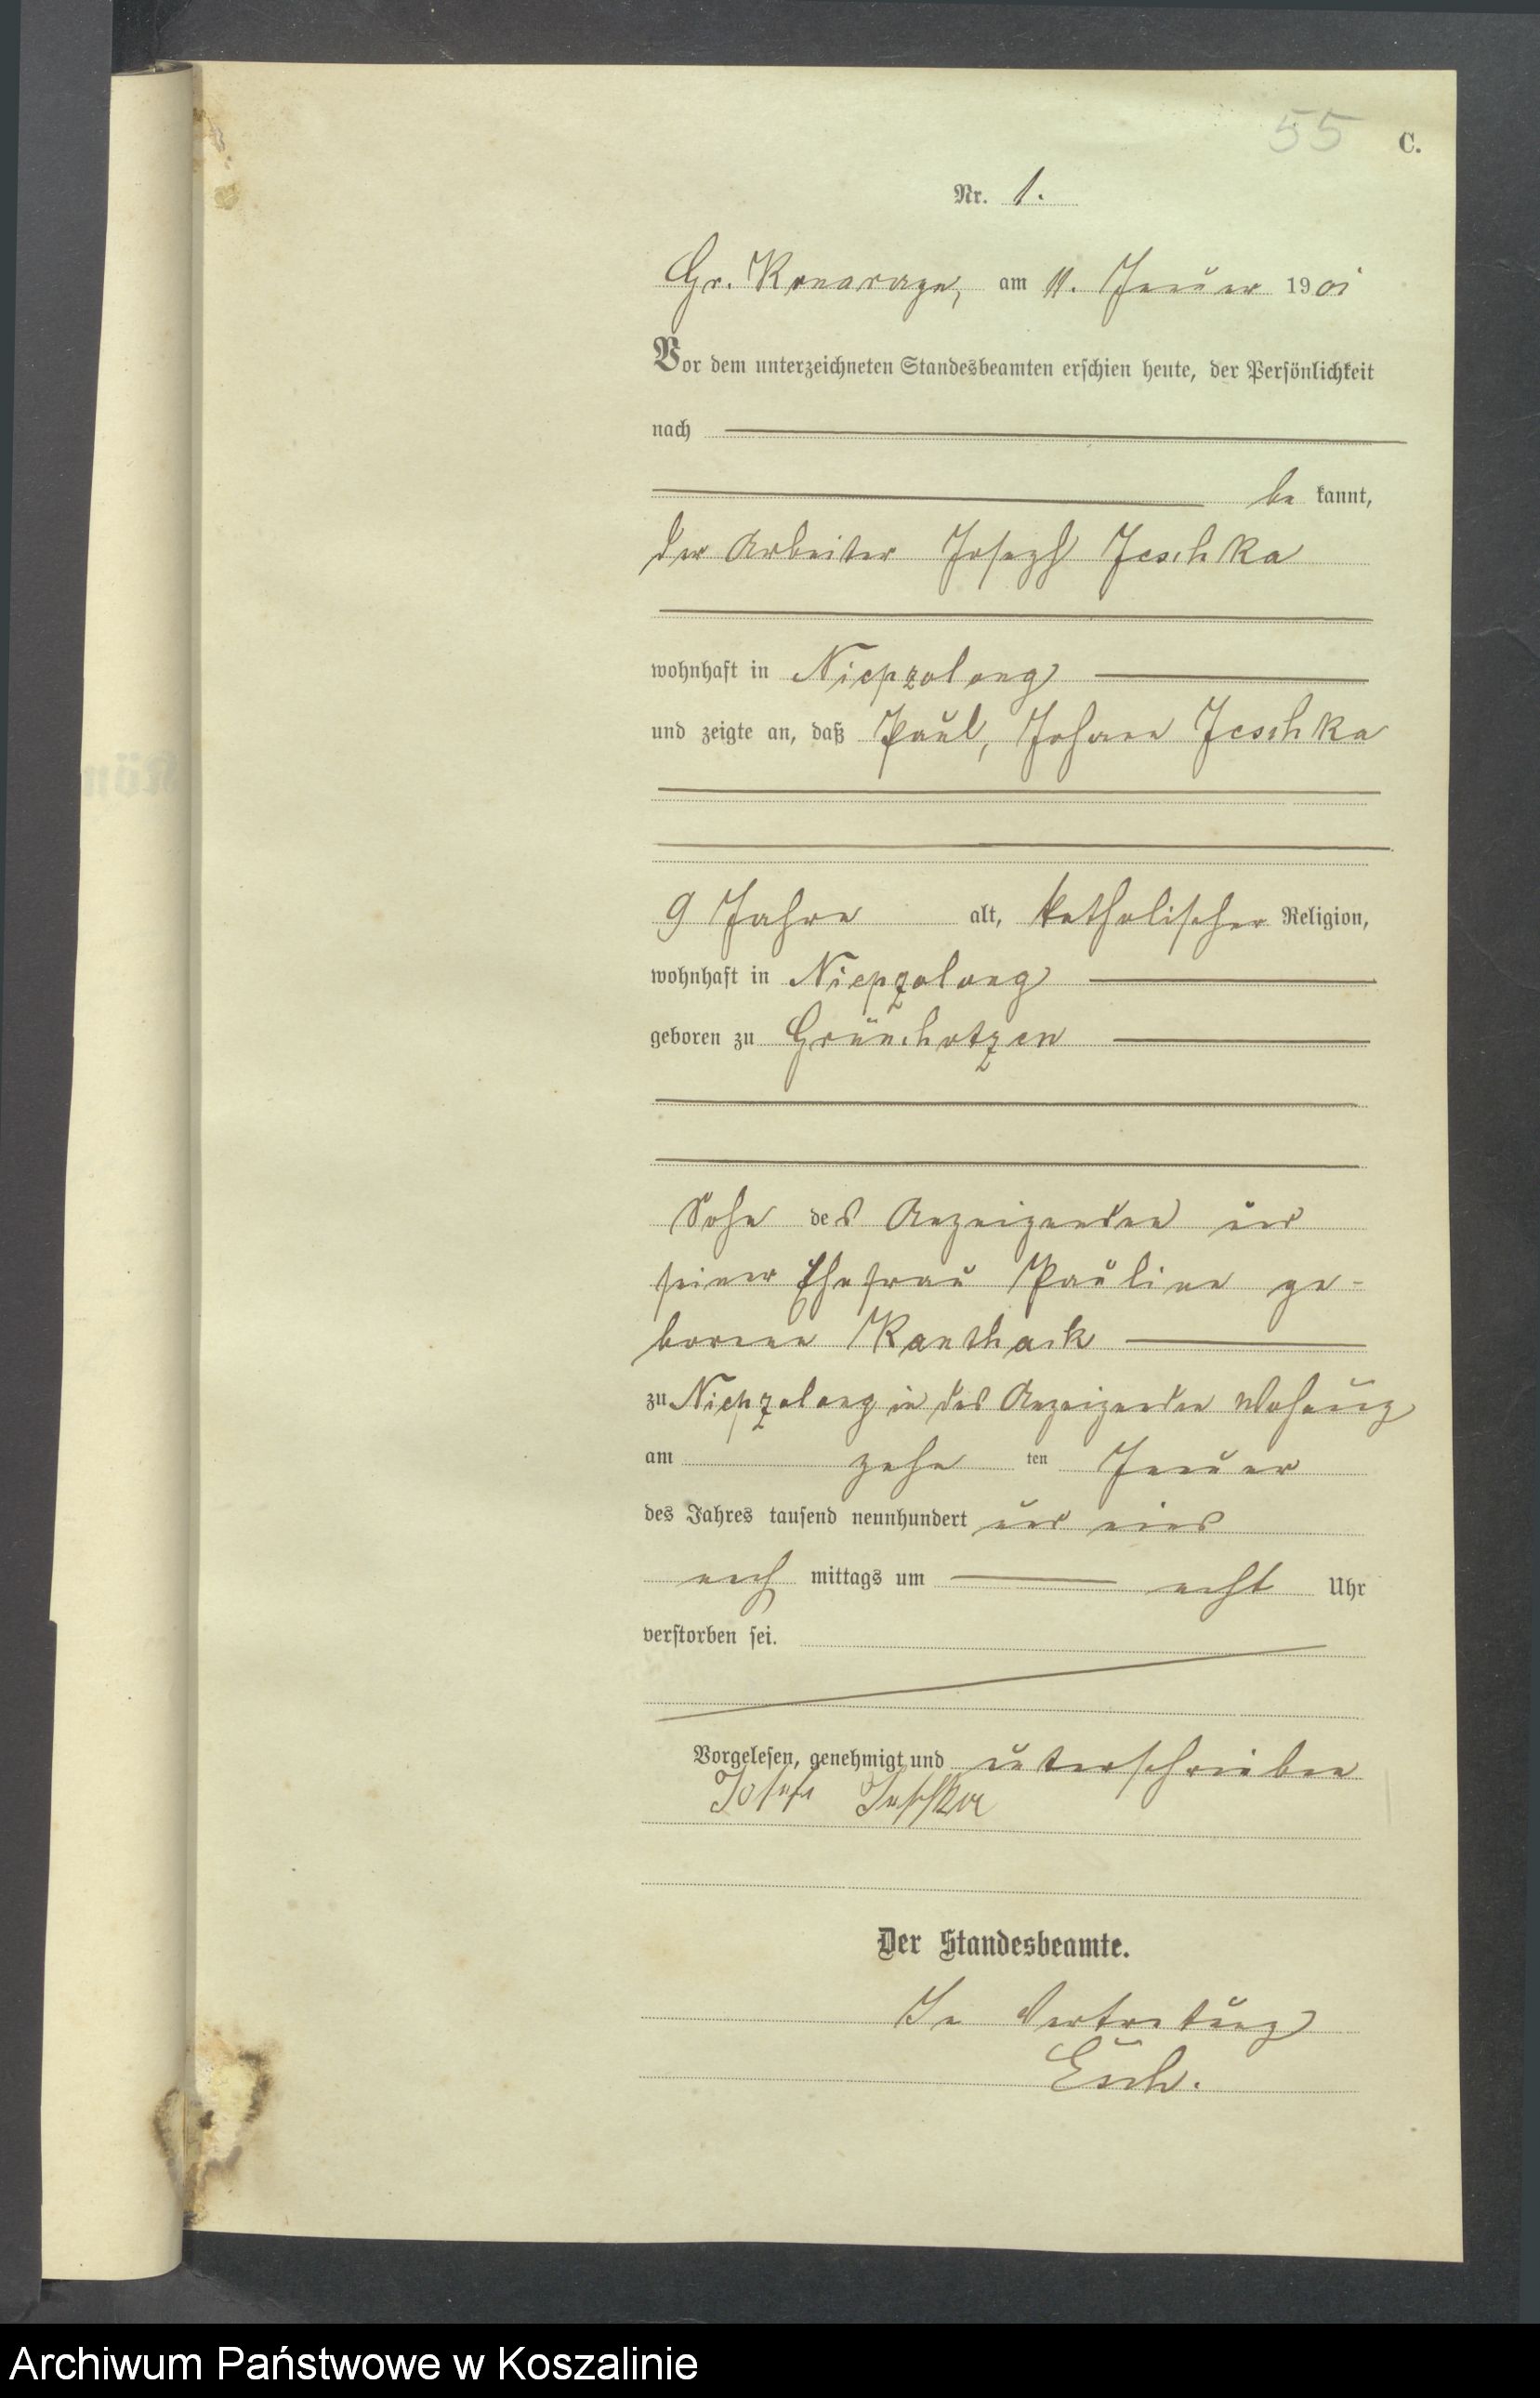 55 C.
Nr. 1.
Gr. Konarczyn, am 11. Januar 1901
Vor dem unterzeichneten Standesbeamten erschien heute, der Persönlichkeit
nach
be kannt,
der Arbeiter Joseph Jeschka
wohnhaft in Niepzolong
und zeigte an, daß Paul, Johann Jeschka
9 Jahre alt, katholischer Religion,
wohnhaft in Niepzolong
geboren zu Grünchotzen
Sohn des Anzeigenden und
seiner Ehefrau Pauline ge-
borenen Kanthack
zu Niepzolong in des Anzeigenden Wohnung
am zehn ten Januar
des Jahres tausend neunhundert und eins
nach mittags um acht Uhr
verstorben sei.
Vorgelesen, genehmigt und unterschrieben
Josef Jeschka
Der Standesbeamte.
In Vertretung
Archiwum Państwowe w Koszalinie